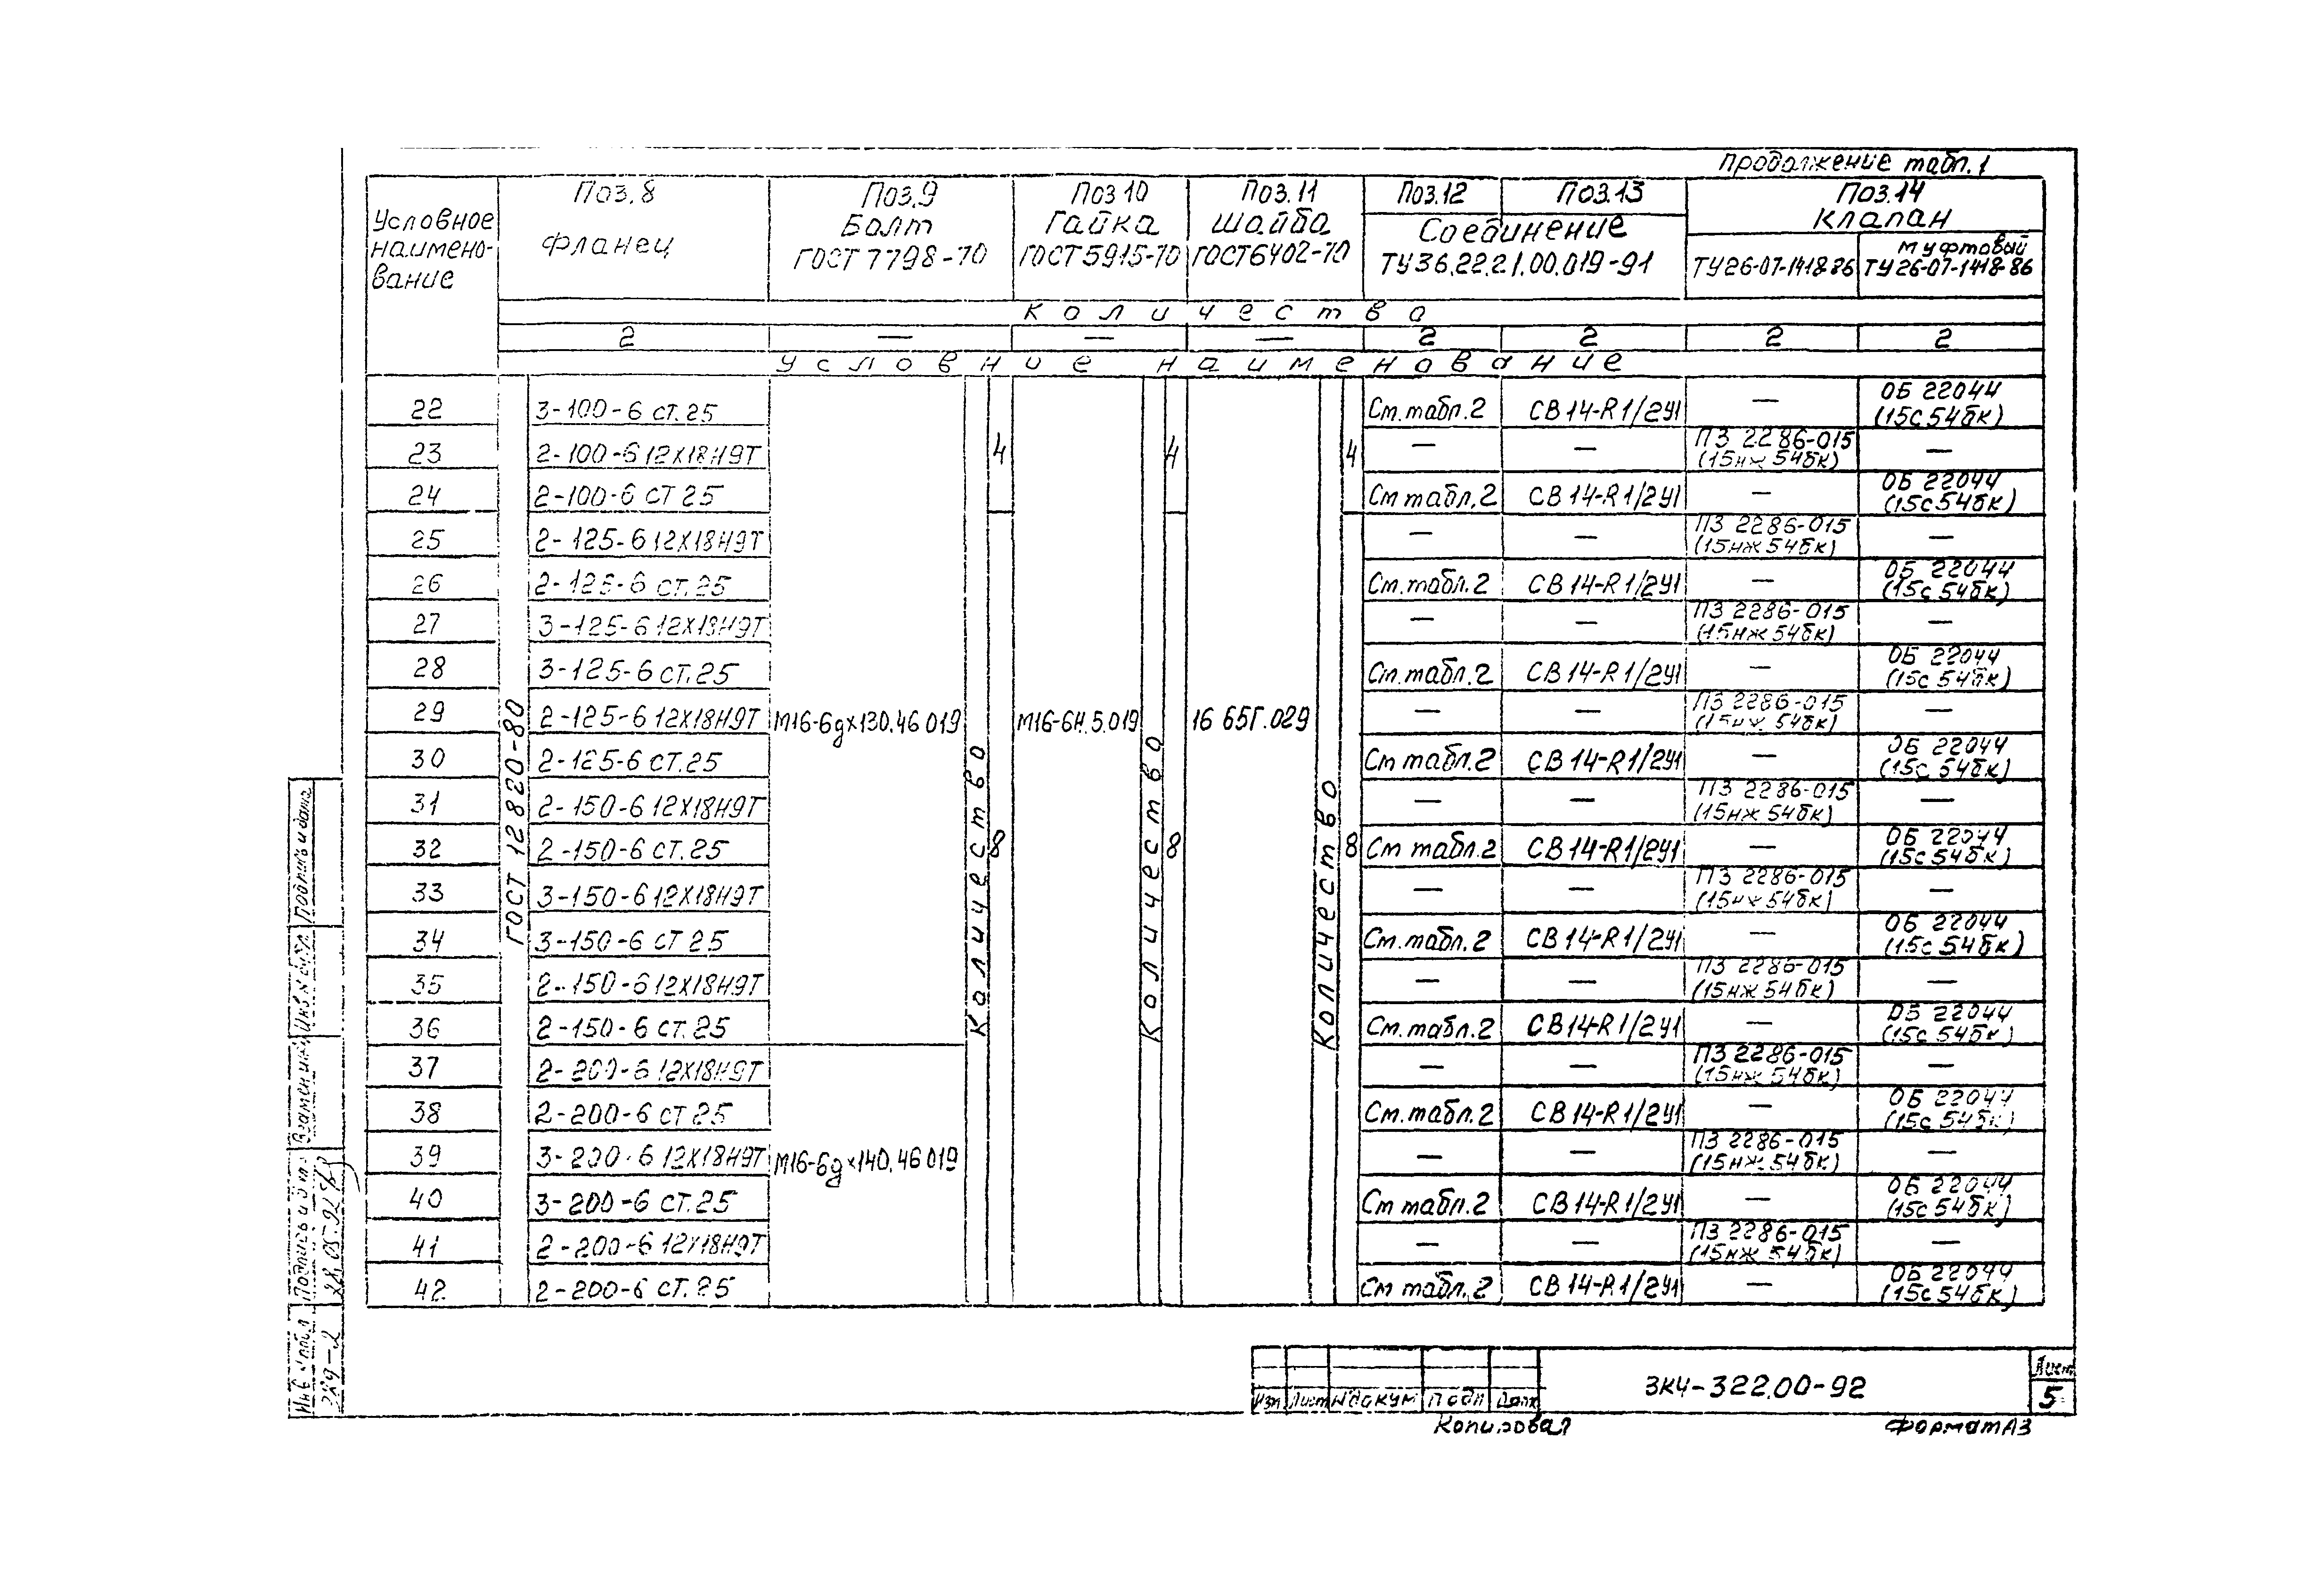 Продолжение табл.1
Условное наимено-вание
Поз.8 Фланец
Поз.9 Болт ГОСТ 7798-70
Поз 10 Гайка ГОСТ 5915-70
Поз.11 Шайба ГОСТ6402-70
Поз.12 Поз.13
Соединение ТУ36.22.21.00.019-91
Поз.14 Клапан
ТУ26-07-1418-86
муфтовый ТУ26-07-1418-86
Количество
2 — — — 2 2 2 2
Условние наименование
ГОСТ 12820-80
22 3-100-6 ст.25 См.табл.2 СВ14-R1/2У1 — ОБ 22044 (15с54бк)
23 2-100-6 12Х18Н9Т — — ПЗ 2286-015 (15нж 54бк) —
24 2-100-6 СТ 25 См табл.2 СВ14-R1/2У1 — ОБ 22044 (15с54бк)
25 2-125-6 12Х18Н9Т — — ПЗ 2286-015 (15нж54бк) —
26 2-125-6 ст.25 См.табл.2 СВ14-R1/2У1 — ОБ 22044 (15с 54бк)
27 3-125-6 12Х18Н9Т — — ПЗ 2286-015 (15нж54бк) —
28 3-125-6 ст.25 См.табл.2 СВ14-R1/2У1 — ОБ 22044 (15с 54бк)
29 2-125-6 12Х18Н9Т — — ПЗ 2286-015 (15нж 54бк) —
30 2-125-6 СТ.25 См табл.2 СВ14-R1/2У1 — ОБ 22044 (15с 54бк)
31 2-150-6 12Х18Н9Т — — ПЗ 2286-015 (15нж 54бк) —
32 2-150-6 СТ.25 См табл.2 СВ14-R1/2У1 — ОБ 22044 (15с 54бк)
33 3-150-6 12Х18Н9Т — — ПЗ 2286-015 (15нж54бк) —
34 3-150-6 СТ 25 См.табл.2 СВ14-R1/2У1 — ОБ 22044 (15с 54бк)
35 2-150-6 12Х18Н9Т — — ПЗ 2286-015 (15нж54бк) —
36 2-150-6 ст.25 См.табл.2 СВ14-R1/2У1 — ОБ 22044 (15с 54бк)
37 2-200-6 12Х18Н9Т — — ПЗ 2286-015 (15нж 54бк) —
38 2-200-6 ст 25 См.табл.2 СВ14-R1/2У1 — ОБ 22044 (15с 54бк)
39 3-200-6 12Х18Н9Т — — ПЗ 2286-015 (15нж 54бк) —
40 3-200-6 СТ.25 См табл.2 СВ14-R1/2У1 — ОБ 22044 (15с 54бк)
41 2-200-6 12Х18Н9Т — — ПЗ 2286-015 (15нж 54бк) —
42 2-200-6 СТ.25 См табл.2 СВ14-R1/2У1 — ОБ 22044 (15с54бк)
М16-6gх130.46 019
М16-6gх140.46 019
Количество 4 8
М16-6Н.5.019
Количество 4 8
16 65Г.029
Количество 4 8
Подпись и дата
Взамен инв
Подпись и
28.05.92
289-2
Изм Лист №докум Подп Дата
ЗК4-322.00-92
Лист
5
Копировал
Формат А3